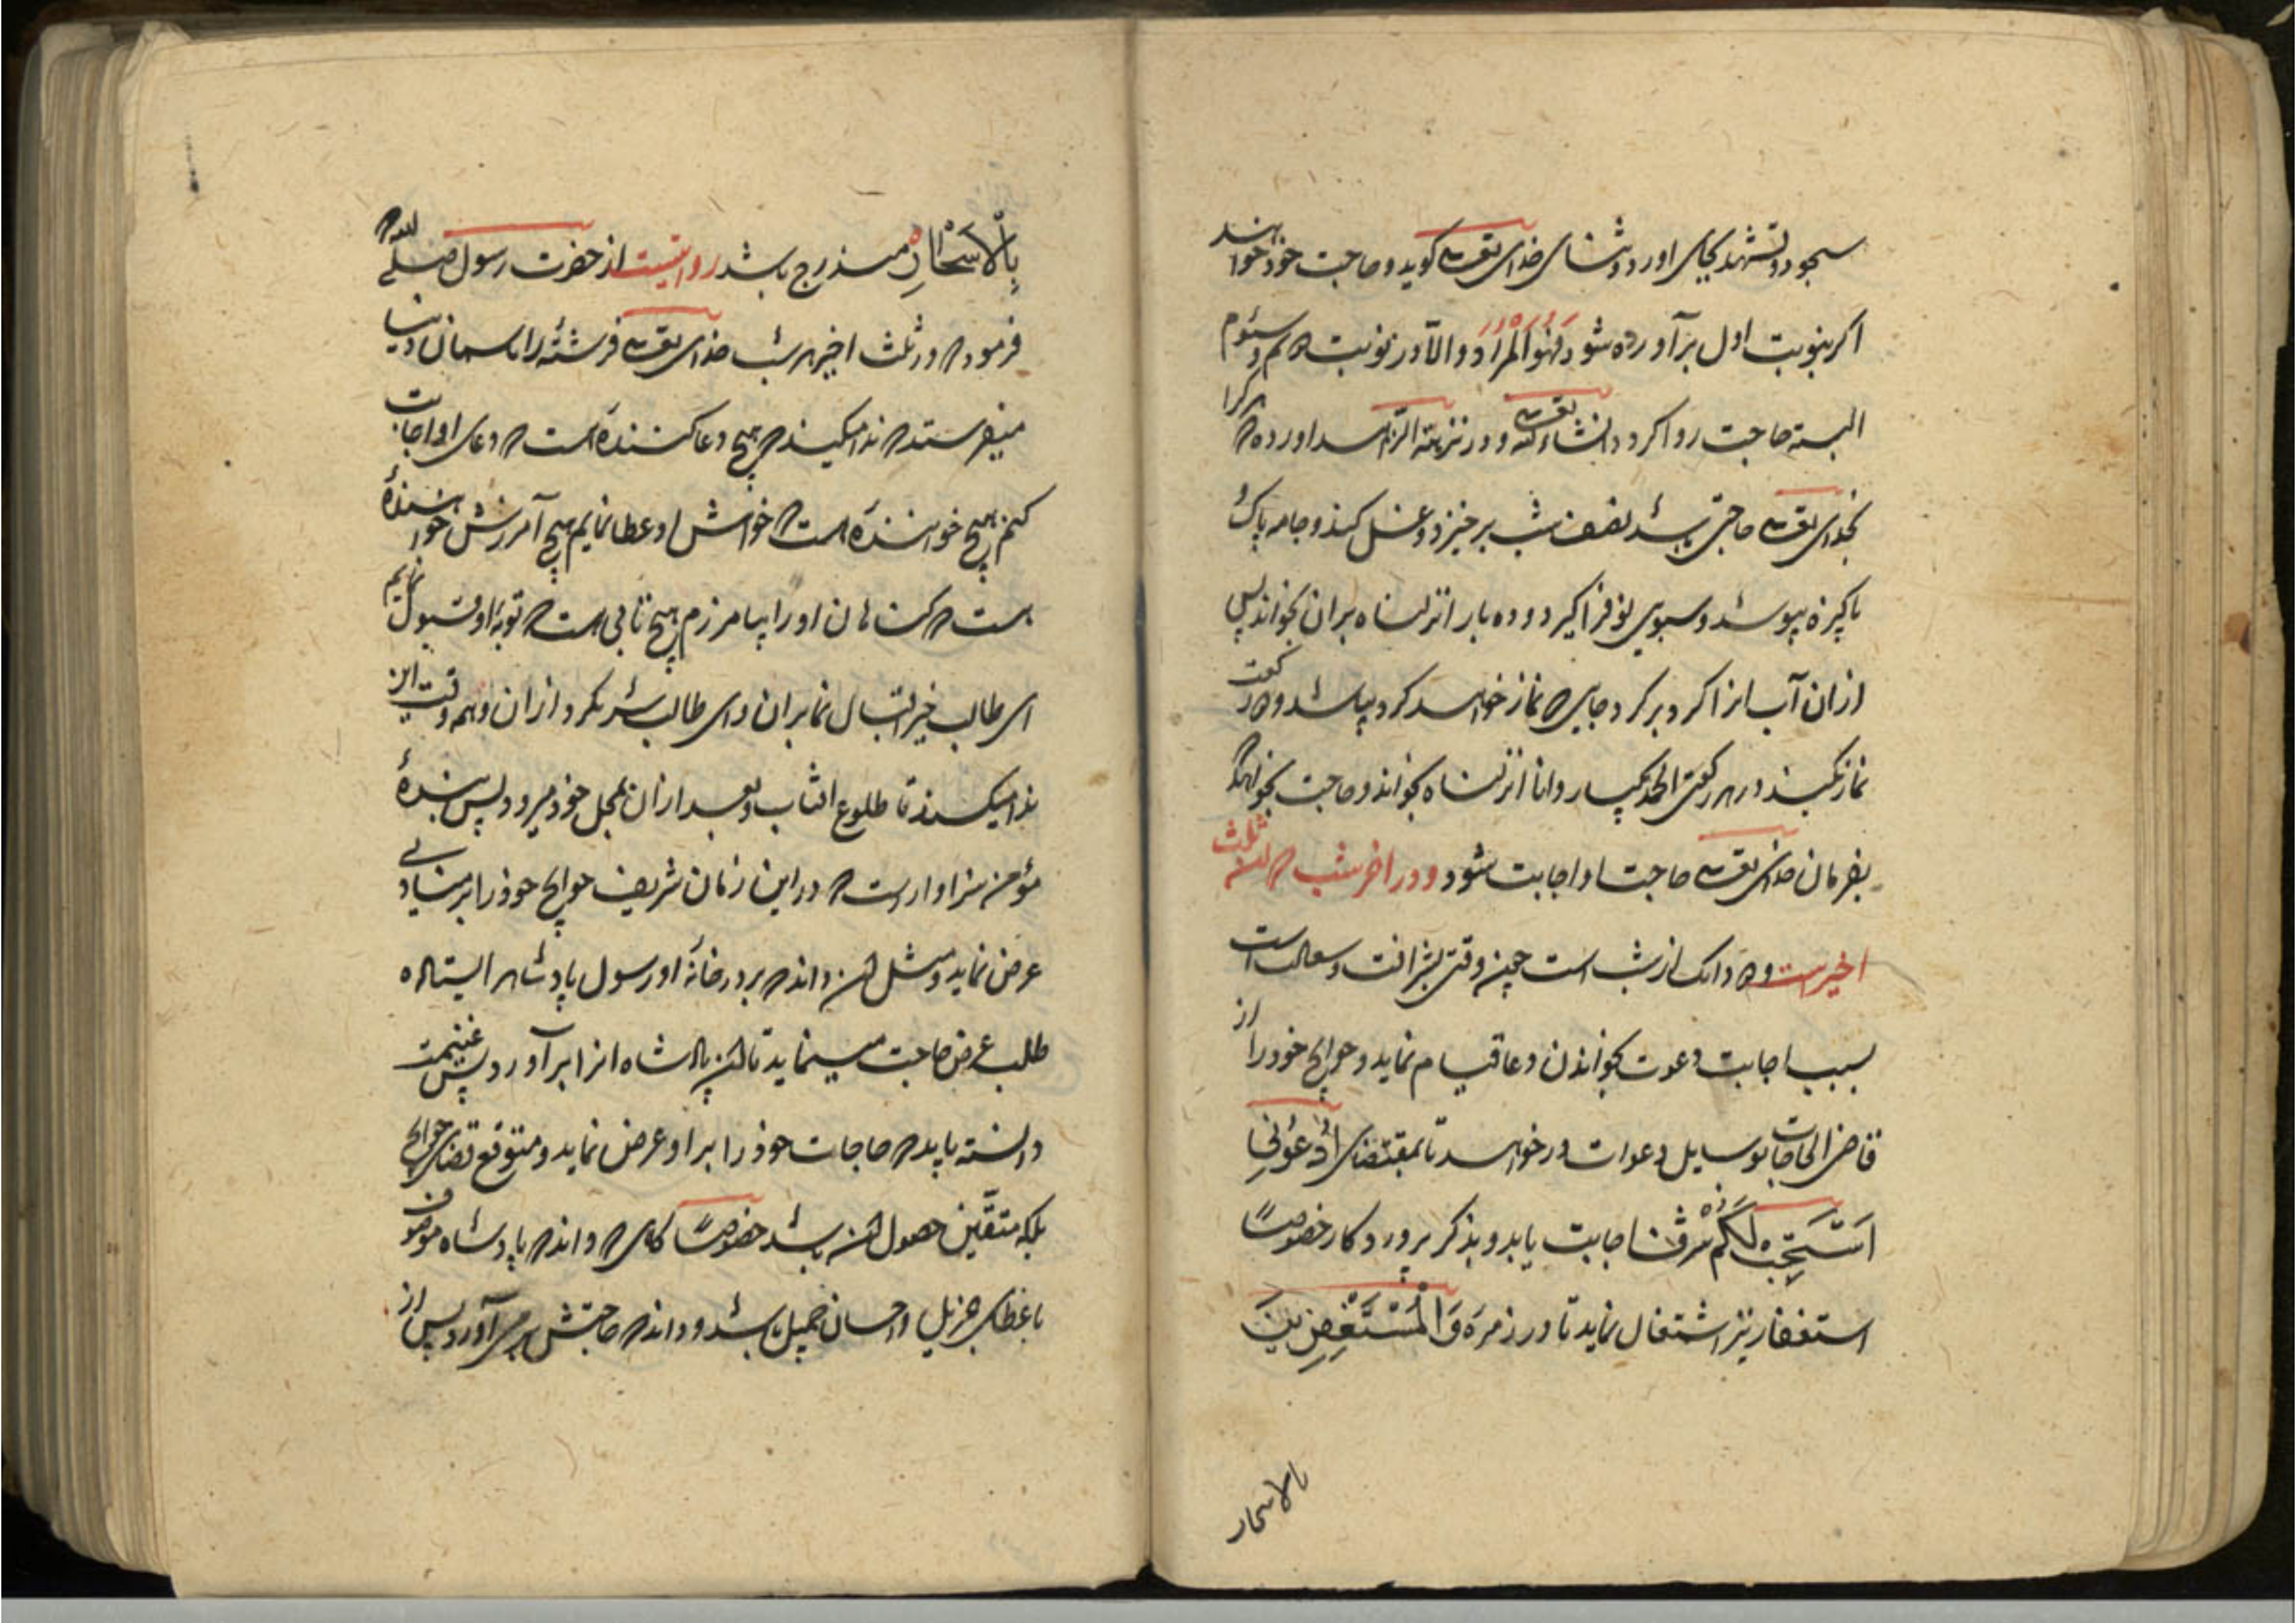 سجود و تشهد بجای اورد و ثنای خدای تعالی کوید و حاجت خود خواهد
اکر بنوبت اول برآورده شود فهو المراد و الا در نوبت دویم و سئوم
البته حاجت روا کردد انشاء الله تعالی و در نزهته الزاهد اورده که هر کرا
بخدای تعالی حاجتی باشد نصف شب برخیزد و غسل کند و جامه پاک و
پاکیزه بپوشد و سبوی نو فراکیرد و ده بار انزلناه بران بخواند پس
ازان آب انرا کرد برکرد جایی که نماز خواهد کرد بپاشد و دو رکعت
نماز بکند در هر رکعتی الحمد یکبار و انا انزلناه بخواند و حاجت بخواهد که
بفرمان خدای تعالی حاجت او اجابت شود و در اخر شب که ثلث
اخیرست و دو دانک از شب است چنین وقتی بشرافت و سعادت است
بسبب اجابت دعوت بخواندن دعا قیام نماید و حوایج خود را از
قاضی الحاجات بوسایل دعوات درخواهد تا بمقتضای ادْعُونِی
اَسْتَجِبْ لَكُمْ شرف اجابت یابد و بذکر پروردکار خصوصاً
استغفار نیز اشتغال نماید تا در زمرهٔ وَالْمُسْتَغْفِرِینَ
بالاسحار
بِالْاَسْحَارِ مندرج باشد روایتست از حضرت رسول صلی الله که
فرمود که در ثلث اخیر هر شب خدای تعالی فرشته را باسمان دنیا
میفرستد که ندا میکند که هیچ دعا کننده است که دعای او اجابت
کنم هیچ خواهنده است که خواهش او عطا نمایم هیچ آمرزش خواهنده
هست که کناهان او را بیامرزم هیچ تائبی هست که توبهٔ او قبول نمایم
ای طالب خیر اقبال نما بران و ای طالب شر بکرد ازان و همه وقت این
ندا میکند تا طلوع افتاب و بعد ازان بمحل خود میرود پس بندهٔ
مؤمن سزاوارست که در این زمان شریف حوایج خود را بر منادی
عرض نماید و مثل ان داند که بر در خانهٔ او رسول پادشاه ایستاده
طلب عرض حاجت مینماید تا ان پادشاه انرا برآورد پس غنیمت
دانسته باید که حاجات خود را بر او عرض نماید و متوقع قضای حوایج
بلکه متقین حصول ان باشد خصوصاً کاهی که داند که پادشاه موصوف
با عطای جزیل و احسان جمیل باشد و داند که حاجتش بر می آورد پس از